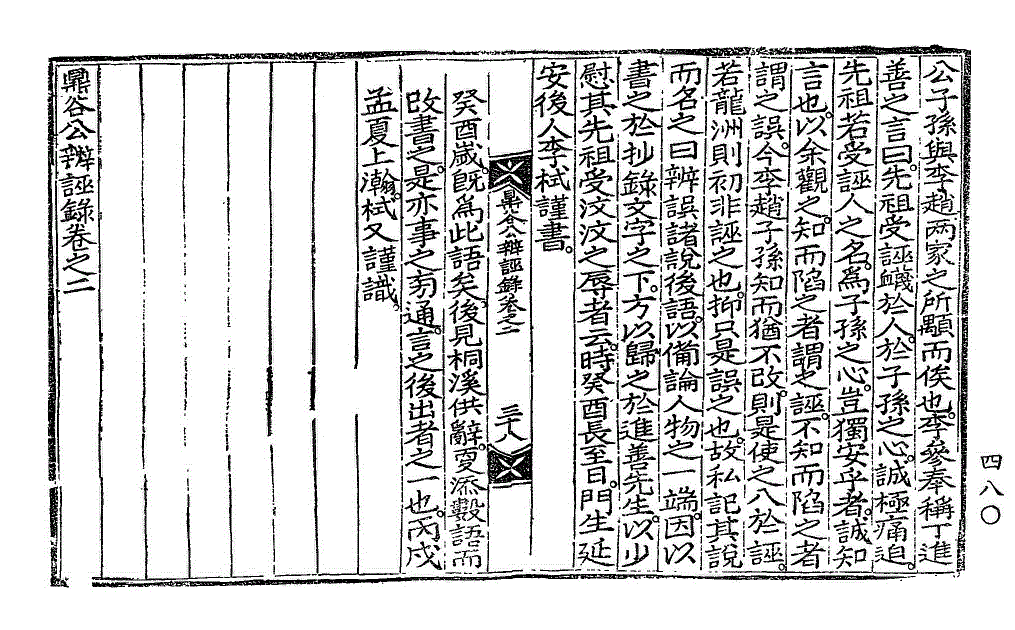 公子孫與李趙两家之所顒而俟也。李參奉稱丁進
善之言曰。先祖受誣衊於人。於子孫之心。誠極痛迫。
先祖若受誣人之名。爲子孫之心。豈獨安乎者。誠知
言也。以余觀之。知而陷之者謂之誣。不知而陷之者
謂之誤。今李趙子孫知而猶不改。則是使之入於誣。
若龍洲則初非誣之也。抑只是誤之也。故私記其說
而名之曰辨誤諸說後語。以備論人物之一端。因以
書之於抄錄文字之下。方以歸之於進善先生。以少
慰其先祖受汶汶之辱者云。時癸酉長至日。門生延
安後人李栻謹書。
鼎谷公辨誣錄卷之二
三十八
癸酉歲。旣爲此語矣。後見桐溪供辭。更添數語而
改書之。是亦事之旁通。言之後出者之一也。丙戌
孟夏上澣。栻又謹識。
鼎谷公辨誣錄卷之二
四八〇